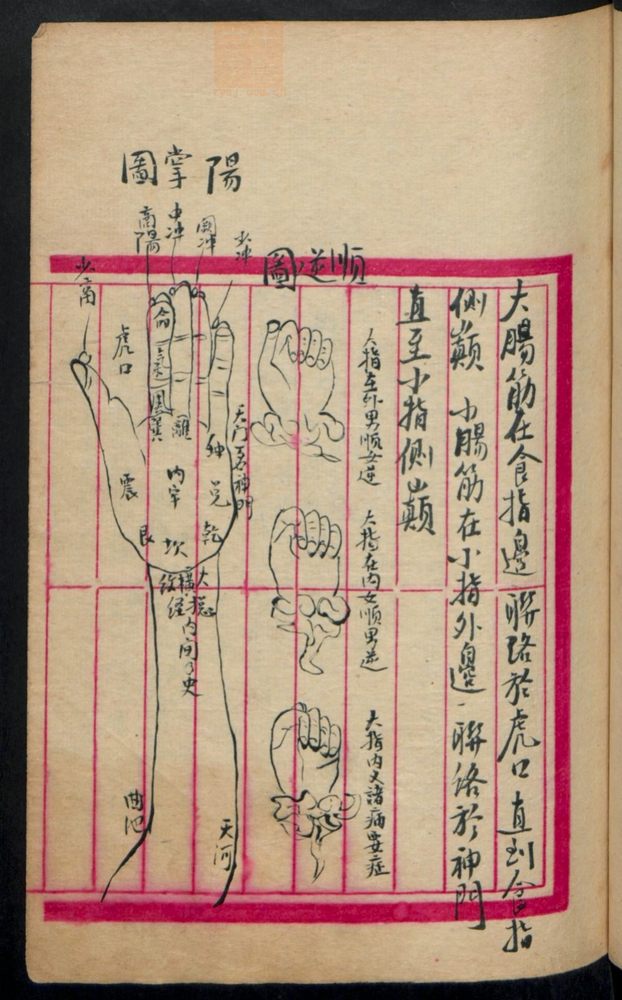 大腸筋在食指邊聯絡於虎口直到食指
側巔 小腸筋在小指外邊聯絡於神門
直至小指側巔
順逆圖
大指在外男順女逆
大指在內女順男逆
大指內叉諸病要症
陽掌圖
少沖
中沖
商陽
少商
虎口
命
離
巽
坤
兌
乾
坎
艮
震
內牢
天門
神門
橫紋
天河
曲池